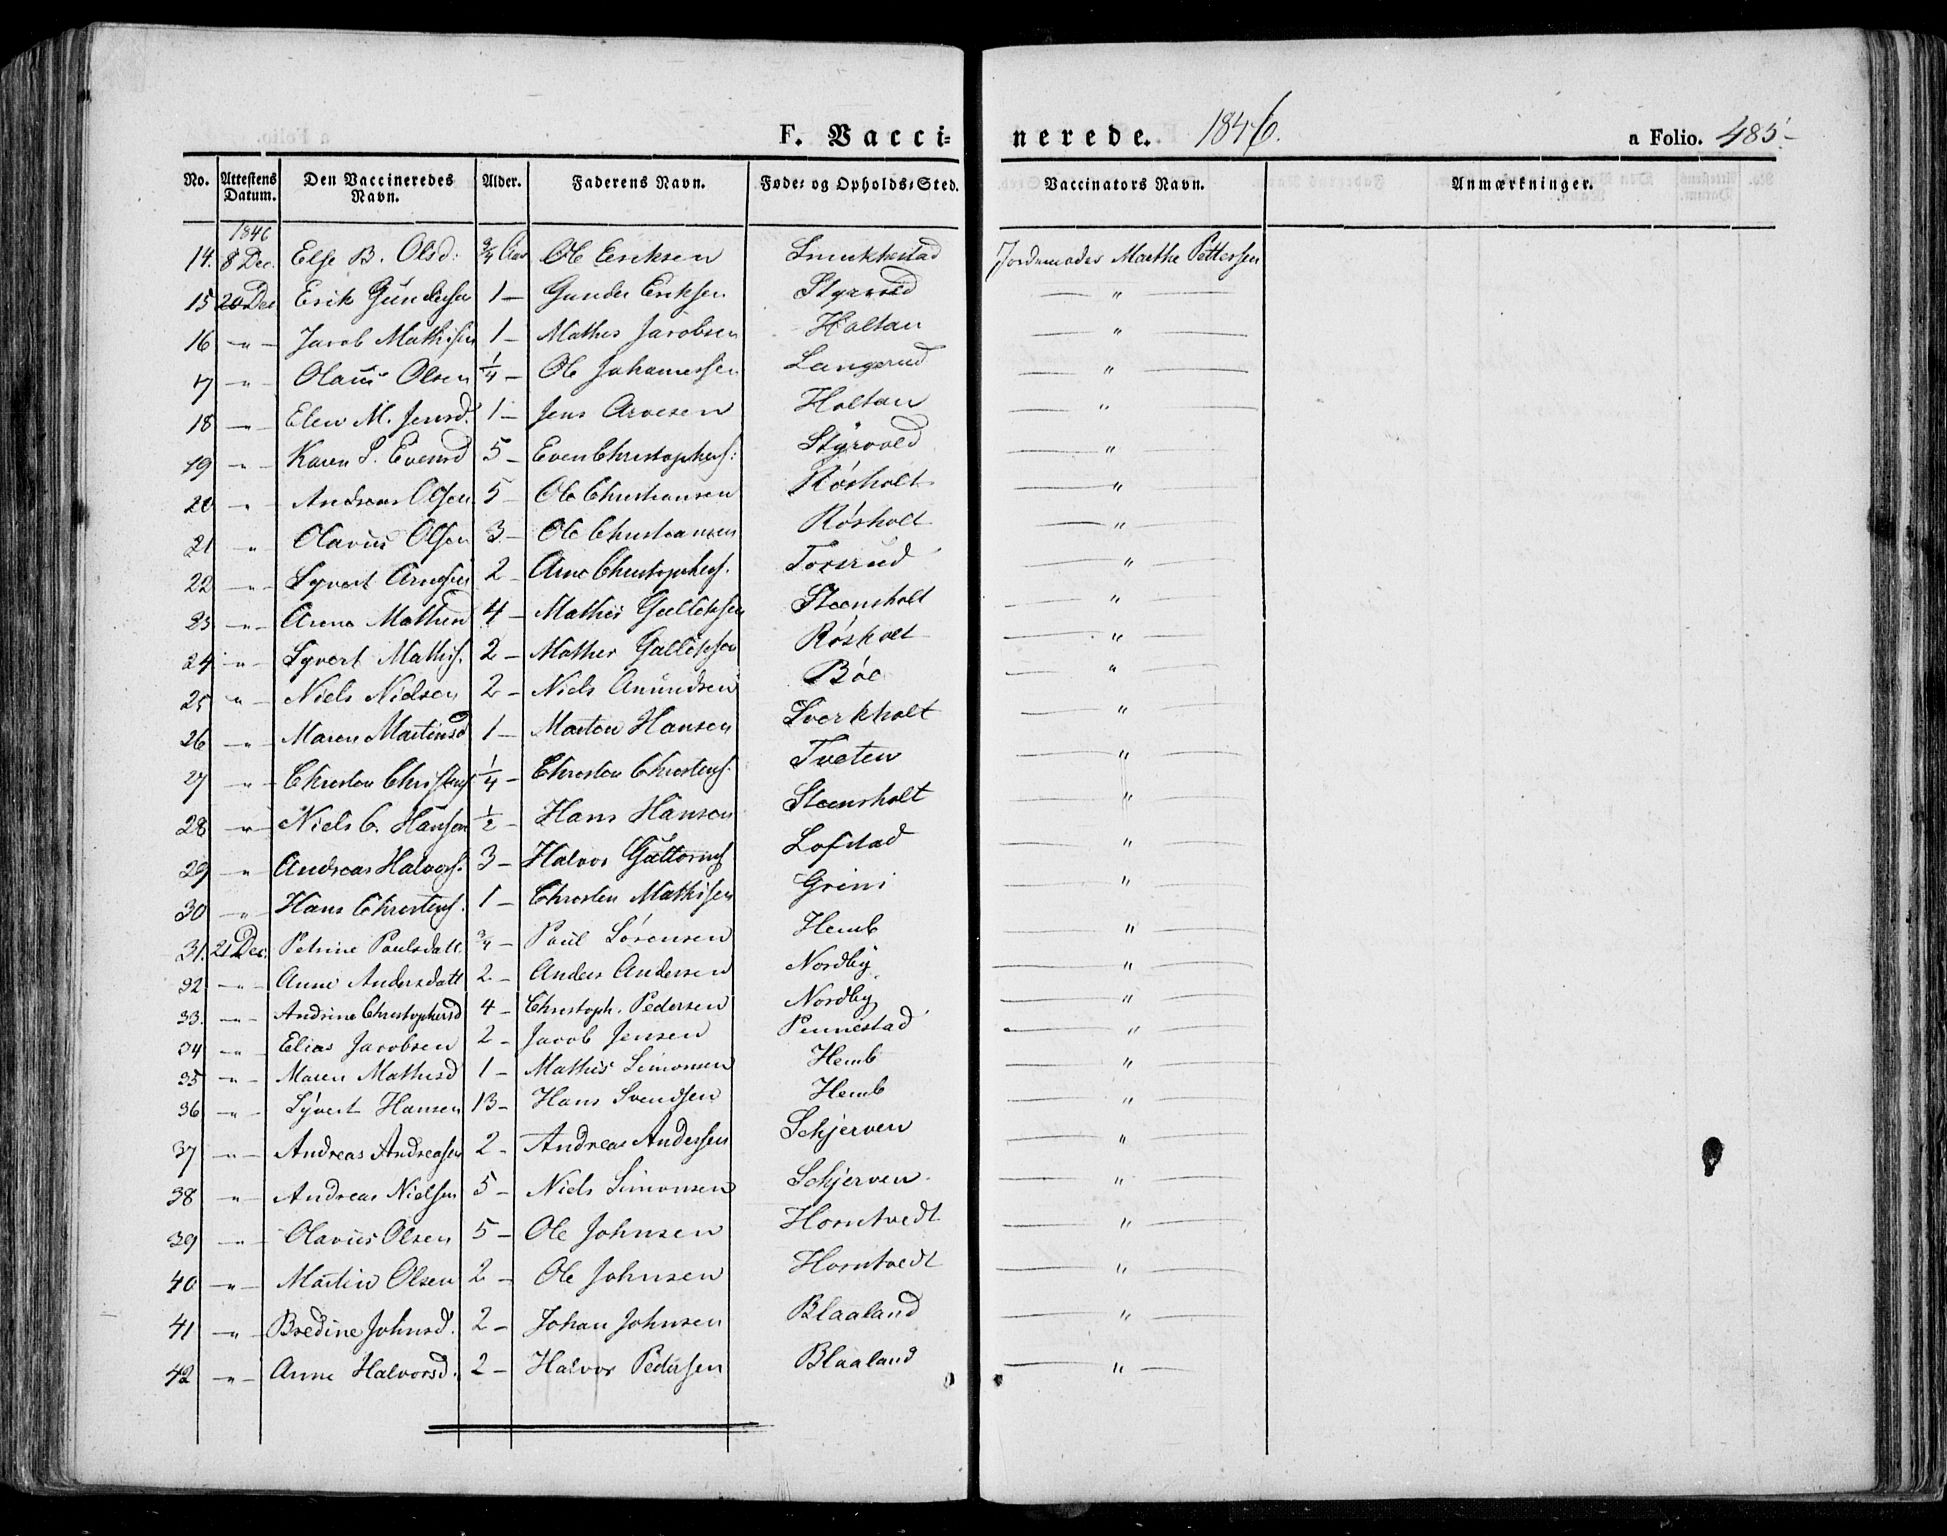 F. Vaccinerede. 1846. a Folio. 485.
No. Attestens Datum. Den Vaccineredes Navn. Alder. Faderens Navn. Føde- og Opholds-Sted. Vaccinators Navn. Anmærkninger.
1846
14. 8 Dec. Else B. Olsd: 3/4 Aar Ole Eriksen Smukkestad Jordemoder Marthe Pettersen
15 20 Dec Erik Gundersen 1 — Gunder Eriksen Styrvold — " —
16 — " — Jacob Mathisen 1 — Mathis Jacobsen Holtan — " —
17 — " — Olaus Olsen 1/4 — Ole Johannessen Langerud — " —
18 — " — Elen M. Jensd. 1 — Jens Arvesen Holtan — " —
19 — " — Karen S. Evensd 5 — Even Christophers: Styrvold — " —
20 — " — Andreas Olsen 5 — Ole Christiansen Røsholt — " —
21 — " — Olavus Olsen 3 — Ole Christiansen Røsholt — " —
22 — " — Syvert Arnesen 2 — Arne Christophers. Torsrud — " —
23 — " — Mathis 4 — Mathis Gulliksen Steensholt — " —
24 — " — Syvert Mathis. 2 — Mathis Gulliksen Røsholt — " —
25 — " — Niels Nielsen 2 — Niels Amundsen Bøe — " —
26 — " — Maren Martinsd 1 — Morten Hansen Sverkholt — " —
27 — " — Christen Christens 1/4 — Christen Christens. Tveten — " —
28 — " — Niels C. Hansen 1/2 — Hans Hansen Steensholt — " —
29 — " — Andreas Halvors. 3 — Halvor Guttorms Lofstad — " —
30 — " — Hans Christens. 1 — Christen Mathisen Grini — " —
31. 21 Dec. Petrine Paulsdatt 3/4 — Paul Sørensen Hemb — " —
32 — " — Anne Andersdatt 2 — Anders Andersen Nordby — " —
33. — " — Andrine Christophersd 4 — Christoph. Pedersen Nordby — " —
34 — " — Elias Jacobsen 2 — Jacob Jensen Pennestad — " —
35 — " — Maren Mathisd 1 — Mathis Simonsen Hemb — " —
36 — " — Syvert Hansen 13 — Hans Svendsen Hemb — " —
37 — " — Andreas Andreasen 2 — Andreas Andersen Schjerven — " —
38 — " — Andreas Nielsen 5 — Niels Simonsen Schjerven — " —
39 — " — Olavus Olsen 5 — Ole Johnsen Horntvedt — " —
40 — " — Martin Olsen 2 — Ole Johnsen Horntvedt — " —
41 — " — Bredine Johnsd. 2 — Johan Johnsen Blaaland — " —
42 — " — Anne Halvorsd. 2 — Halvor Pedersen Blaaland — " —